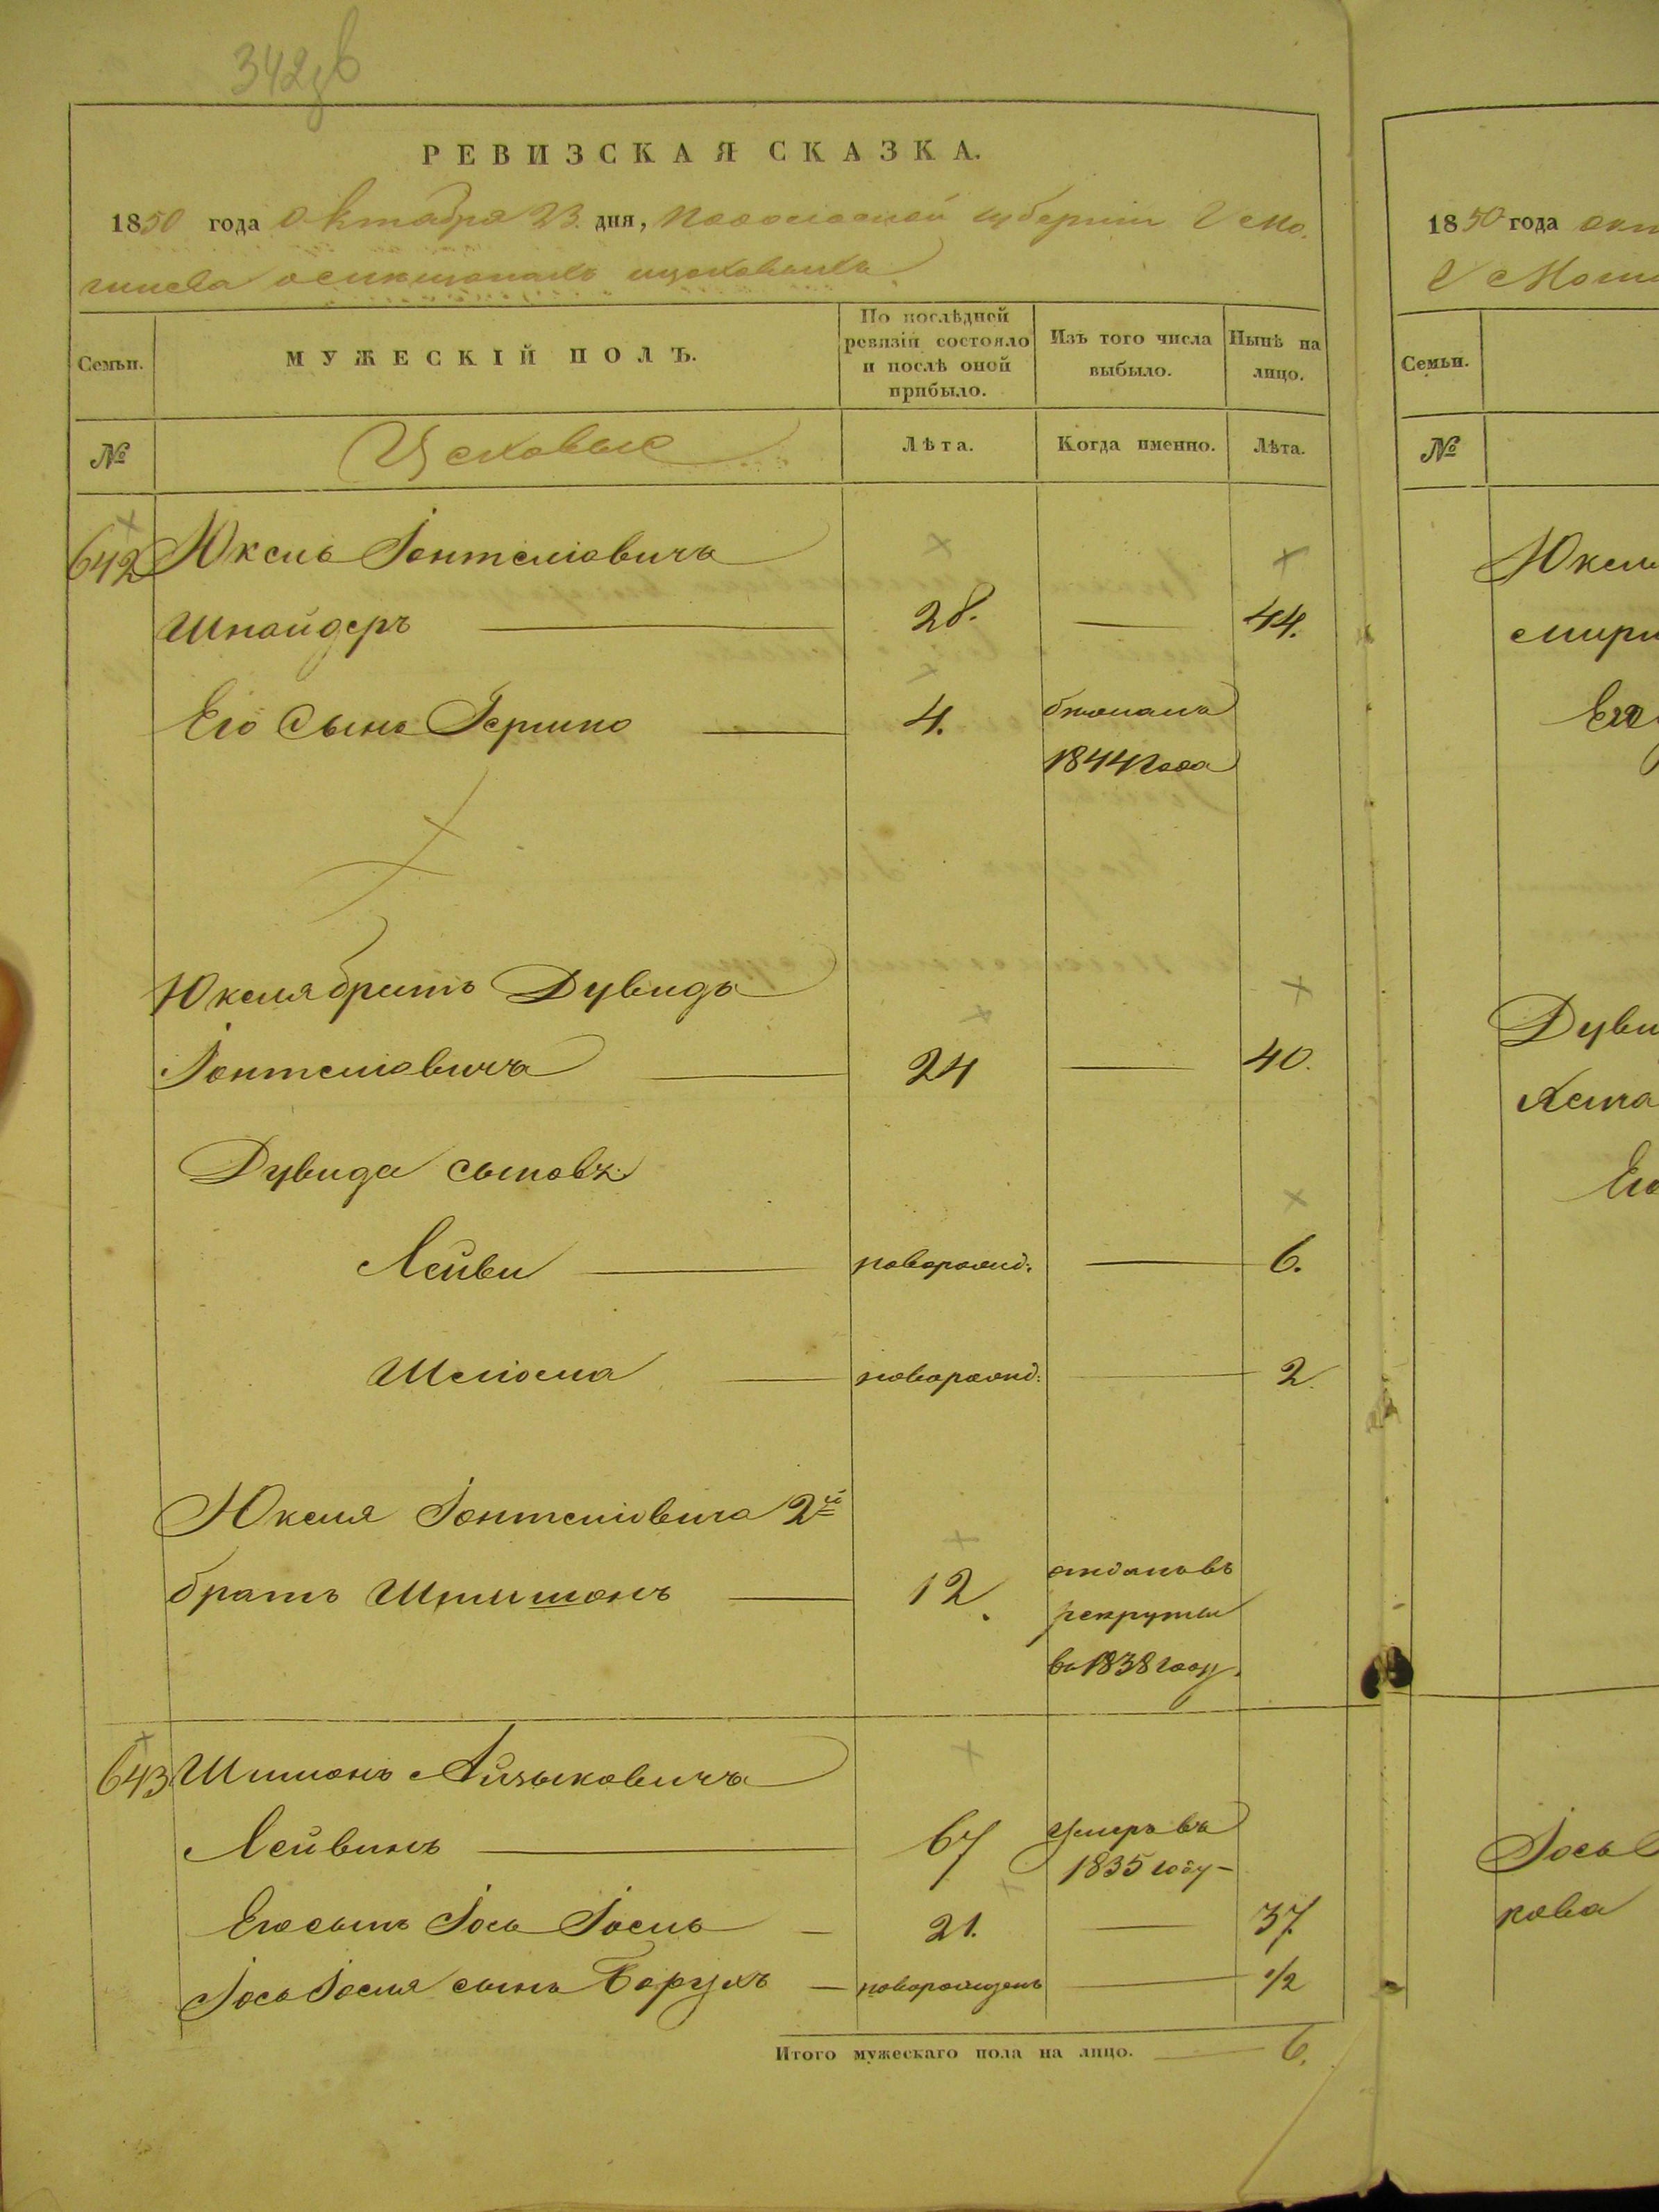 342
РЕВИЗСКАЯ СКАЗКА.
1850 года Октября 23. дня, Подольской губерніи Г. Мо-
гилева о цеховыхъ
Семьи.
МУЖЕСКІЙ ПОЛЪ.
По послѣдней ревизіи состояло и послѣ оной прибыло.
Изъ того числа выбыло.
Нынѣ на лицо.
№
Цеховые
Лѣта.
Когда именно.
Лѣта.
642 Юкель Іонтеліовичъ
Шнайдеръ 28. 44.
Его Сынъ Гершко 4.
1844 года
Юкеля братъ Дувидъ
Іонтеліовичъ 24 40.
Дувида сыновья
Лейби новорожд: 6.
Шеліома новорожд: 2.
Юкеля Іонтеліовича 2й
братъ Шмишонъ 12. отданъ въ
рекруты
въ 1838 году.
643 Шимонъ Айзыковичъ
Лейвинъ 67 умеръ въ
1835 году
Его сынъ Іось Іосель 21. 37.
Іось Іоселя сынъ Борухъ новорожденъ 1/2
Итого мужескаго пола на лицо. 6.
1850 года окт
Г. Моги
Семьи.
№
Юкел
Его
Дуви
Его
Іось
кова